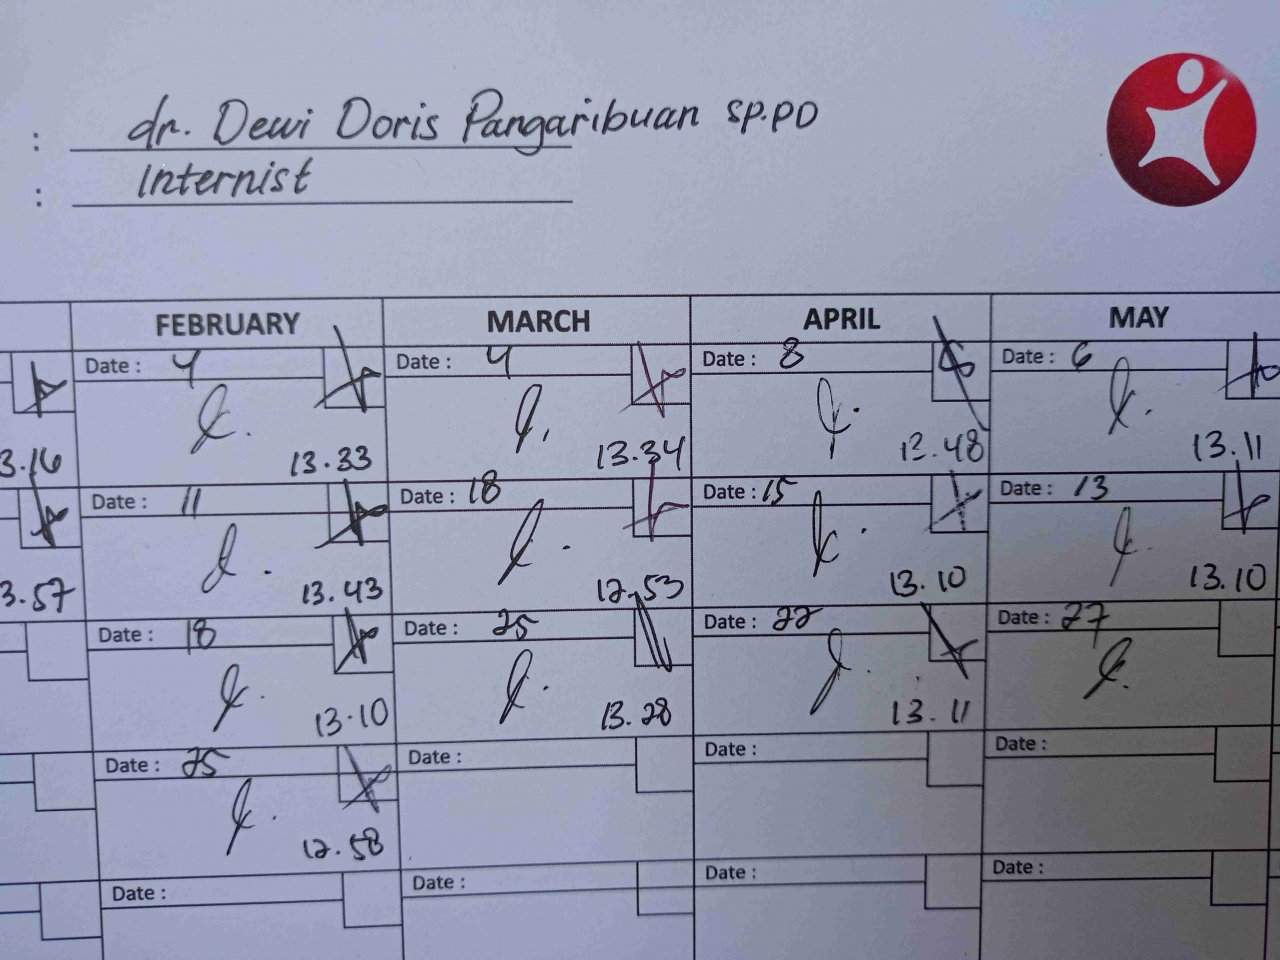 : dr. Dewi Doris Pangaribuan SP.PD
: Internist
FEBRUARY MARCH APRIL MAY
Date : 4 Date : 4 Date : 8 Date : 6
3.16 13.33 13.34 13.48 13.11
Date : 11 Date : 18 Date : 15 Date : 13
3.57 13.43 12.53 13.10 13.10
Date : 18 Date : 25 Date : 22 Date : 27
13.10 13.28 13.11
Date : 25 Date : Date : Date :
12.58
Date : Date : Date : Date :